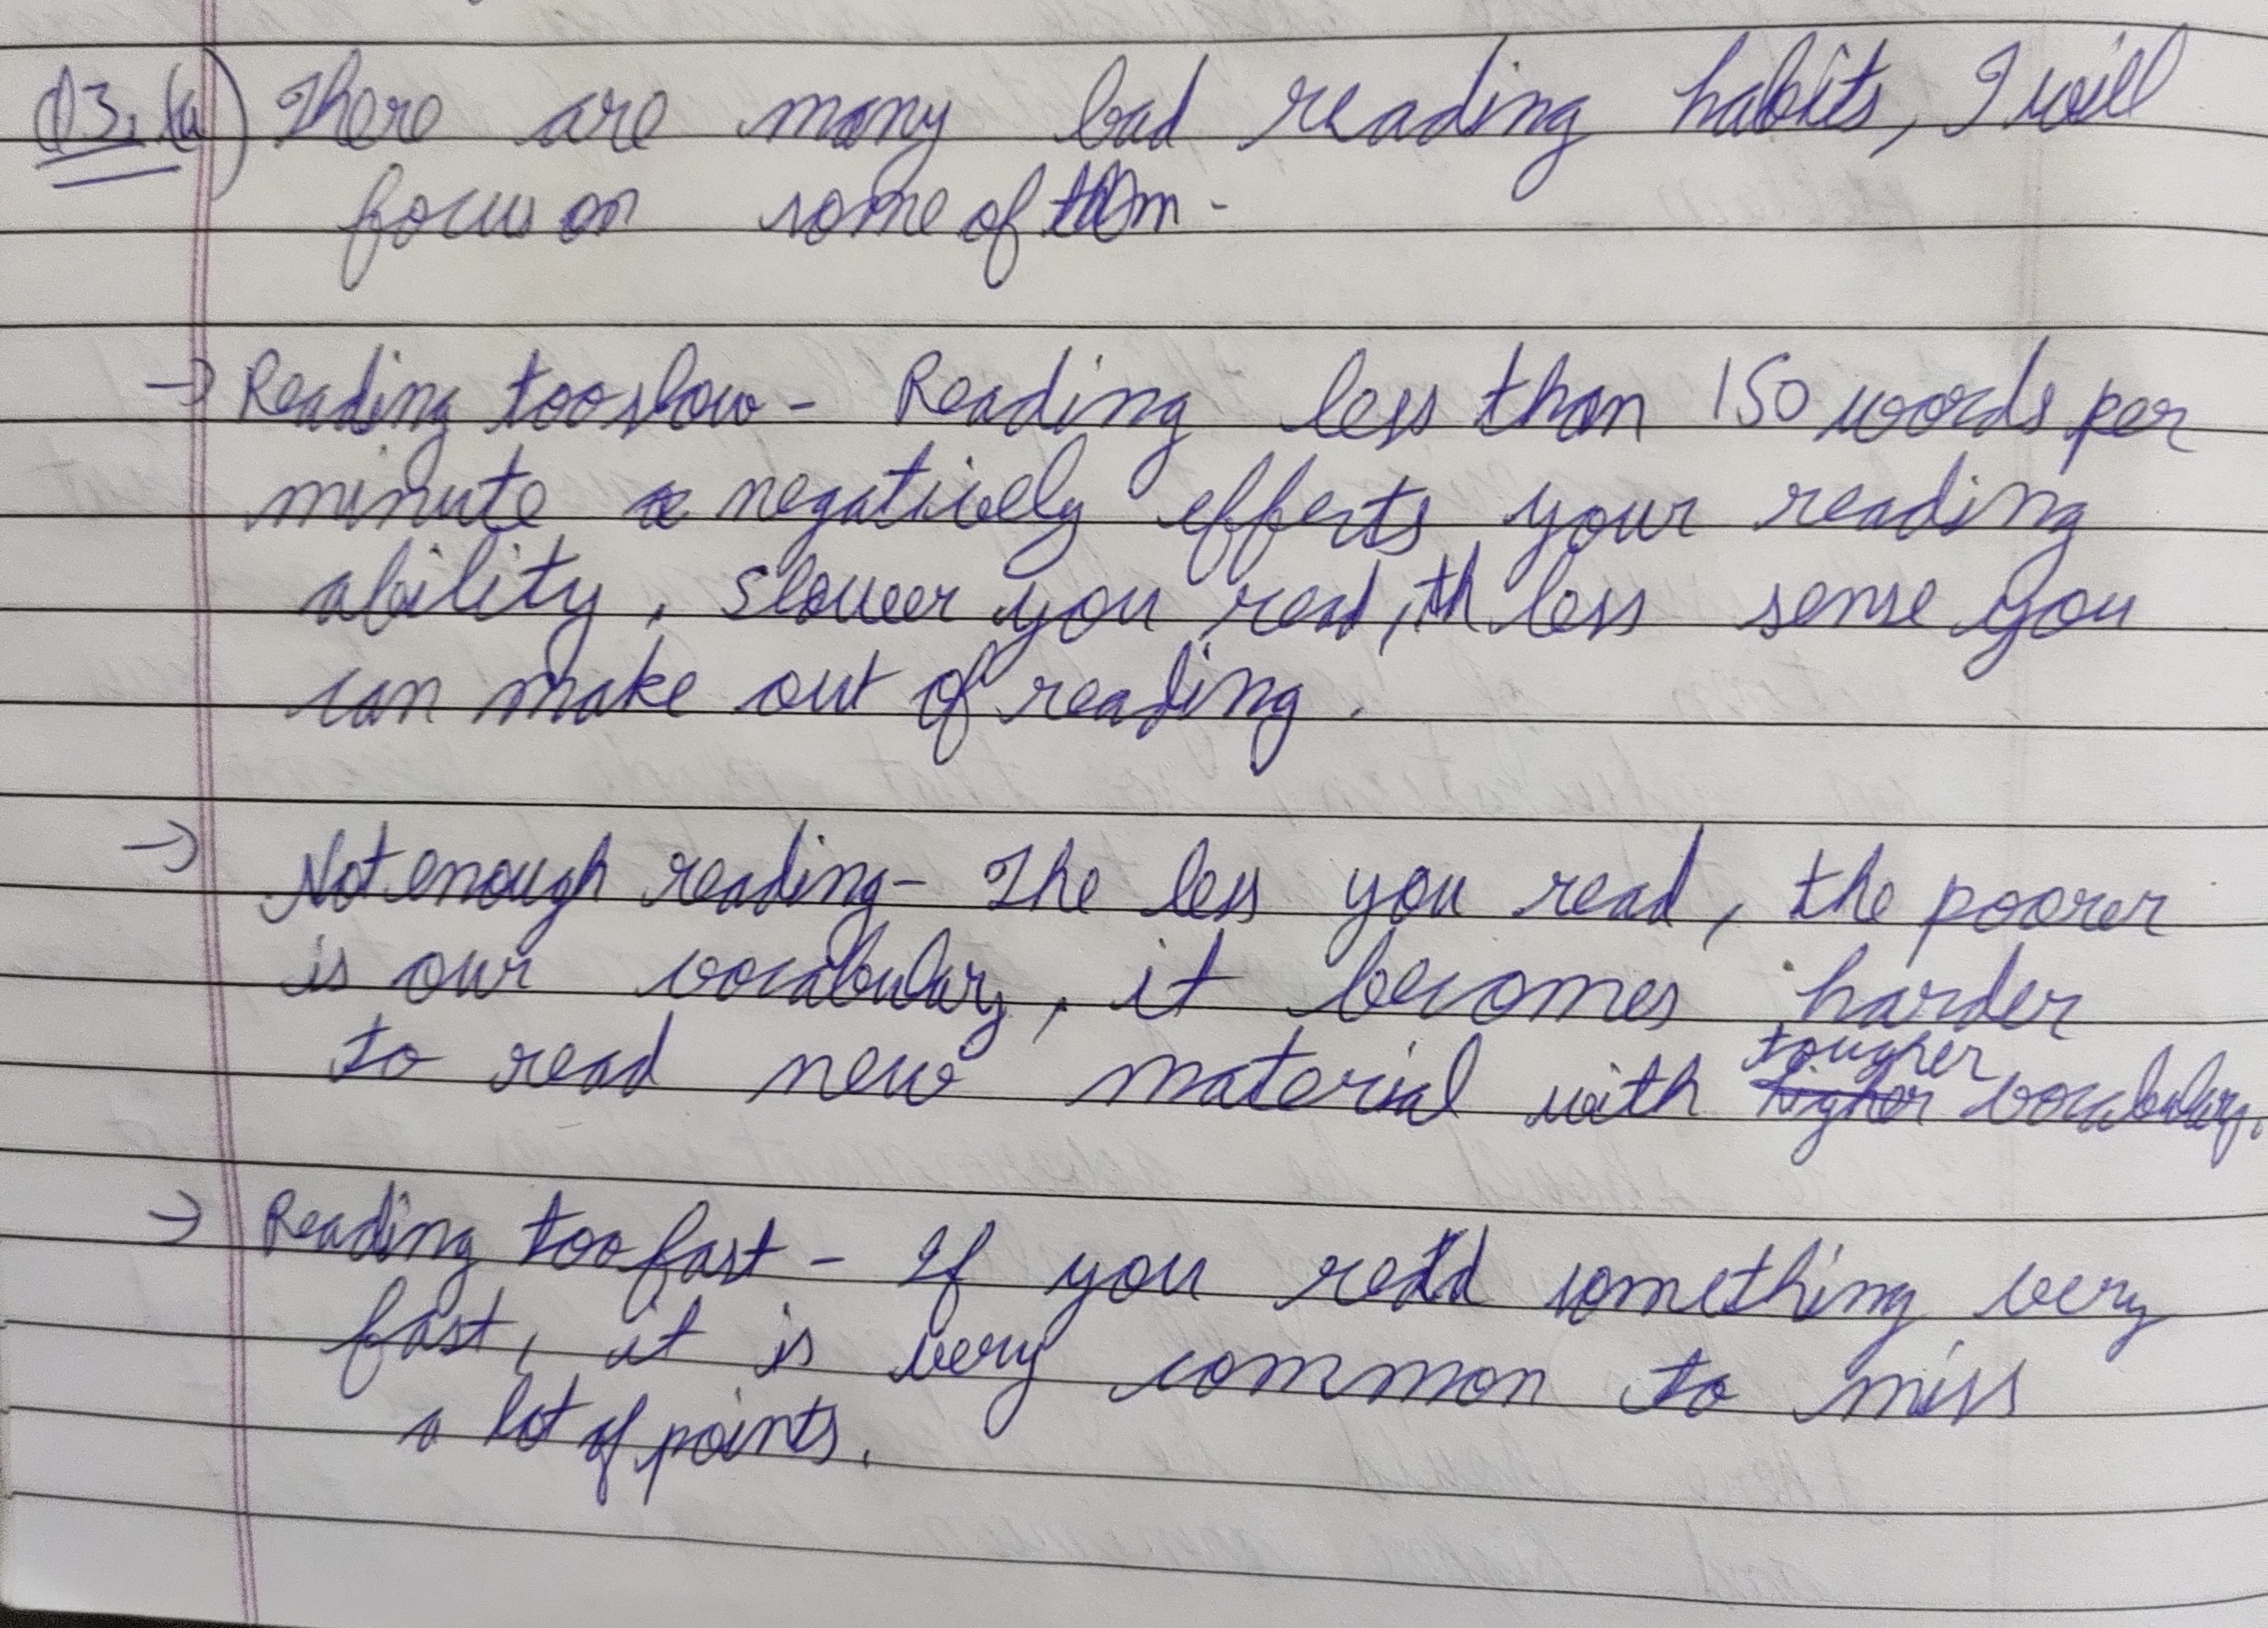 Q3. (a) There are many bad reading habits, I will
focus on some of them -
→ Reading too slow - Reading less than 150 words per
minute negatively effects your reading
ability, slower you read, th less sense you
can make out of reading.
→ Not enough reading - The less you read, the poorer
is our vocabulary, it becomes harder
to read new material with tougher vocabulary.
→ Reading too fast - If you read something very
fast, it is very common to miss
a lot of points.